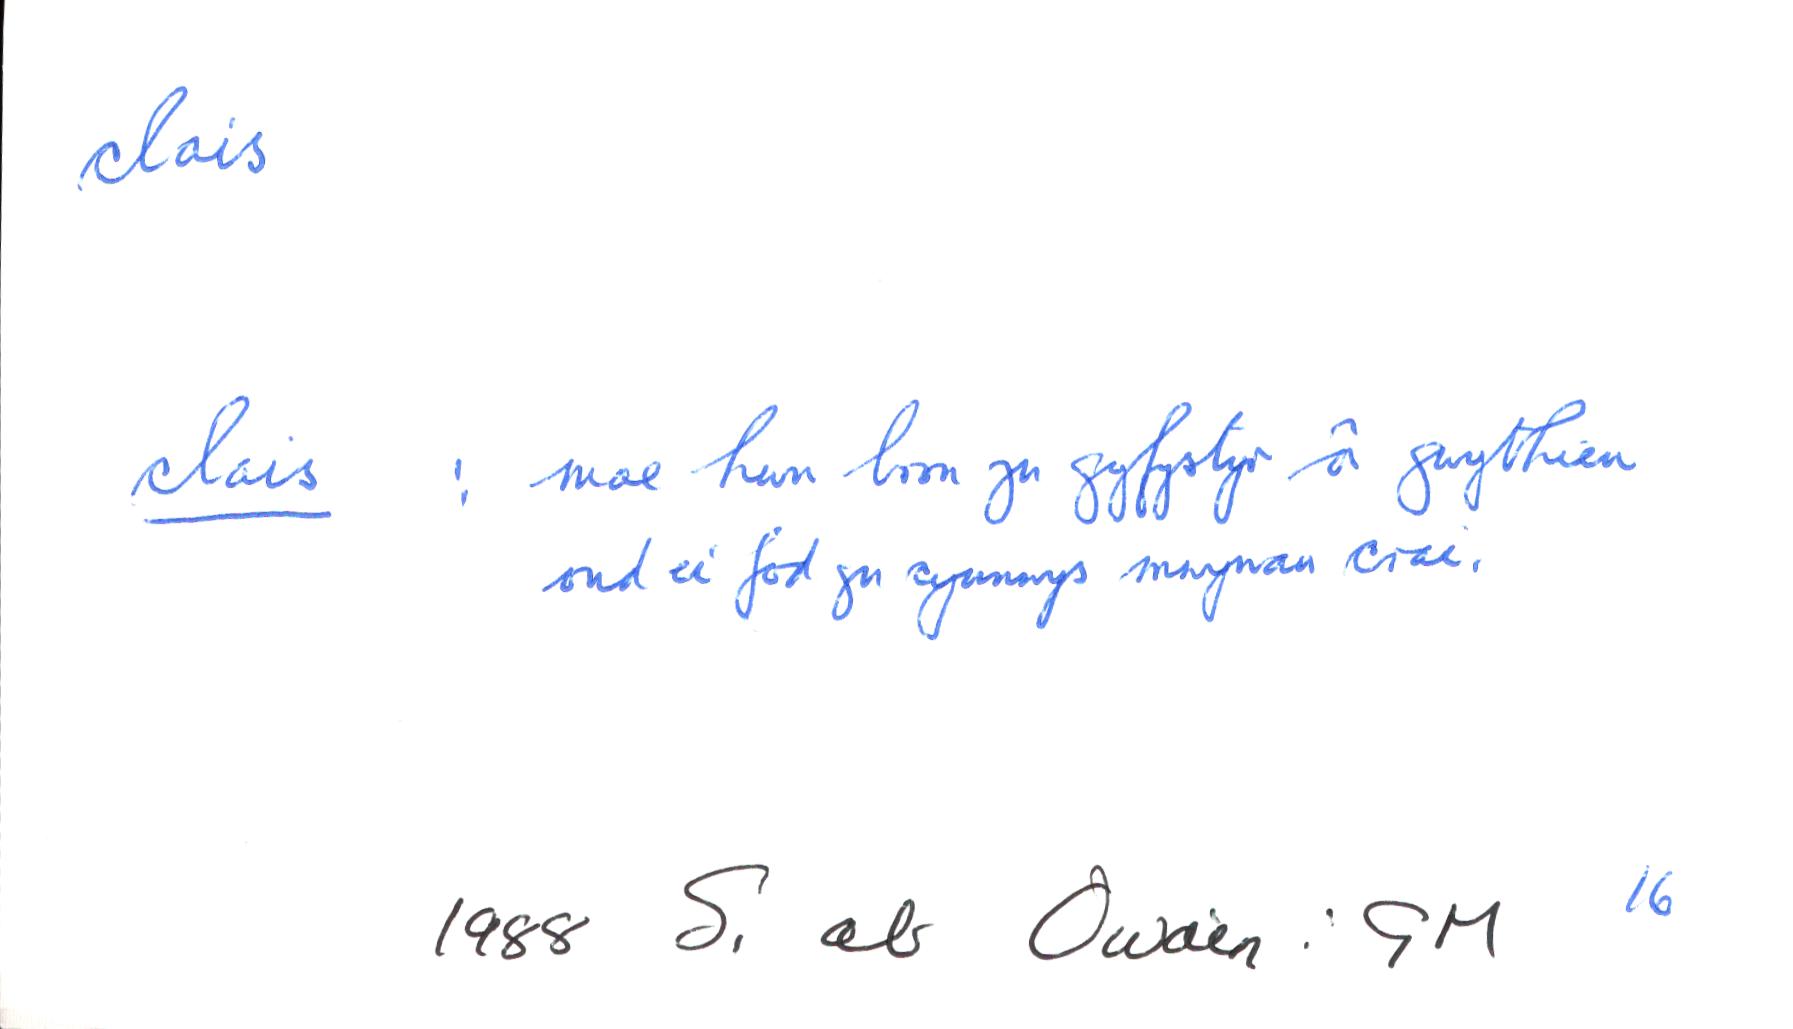 clais
clais : mae hwn bron yn gyfystyr â gwythïen
ond ei fod yn cynnwys mwynau crai.
1988 S. ab Owain : GM 16